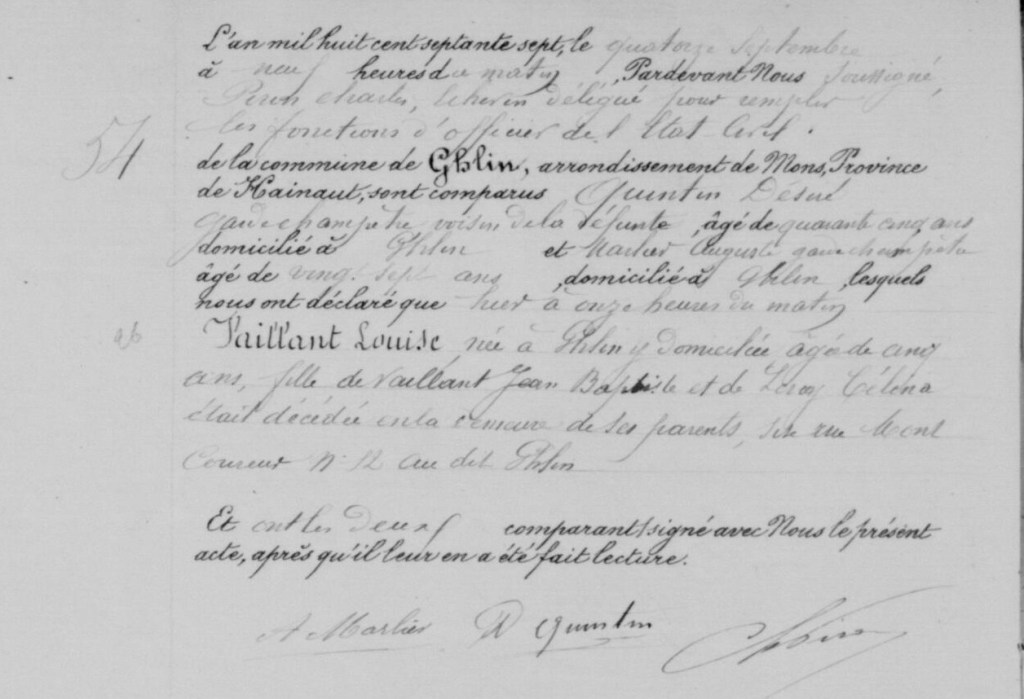 L'an mil huit cent septante sept, le quatorze Septembre
à neuf heures du matin, Pardevant Nous soussigné,
Charles, Echevin délégué pour remplir
les fonctions d'officier de l'Etat Civil
54
de la commune de Ghlin, arrondissement de Mons, Province
de Hainaut, sont comparus Quintin Désiré
garde champêtre voisin de la défunte, âgé de quarante cinq ans
domicilié à Ghlin et Marlier Auguste garde champêtre
âgé de vingt sept ans, domicilié à Ghlin, lesquels
nous ont déclaré que hier à onze heures du matin
Vaillant Louise, née à Ghlin y domiciliée, âgée de cinq
ans, fille de Vaillant Jean Baptiste et de Leroy Célina
était décédée en la demeure de ses parents, sise rue Mont
N° 12 au dit Ghlin
Et ont les deux comparants signé avec Nous le présent
acte, après qu'il leur en a été fait lecture.
A Marlier D Quintin